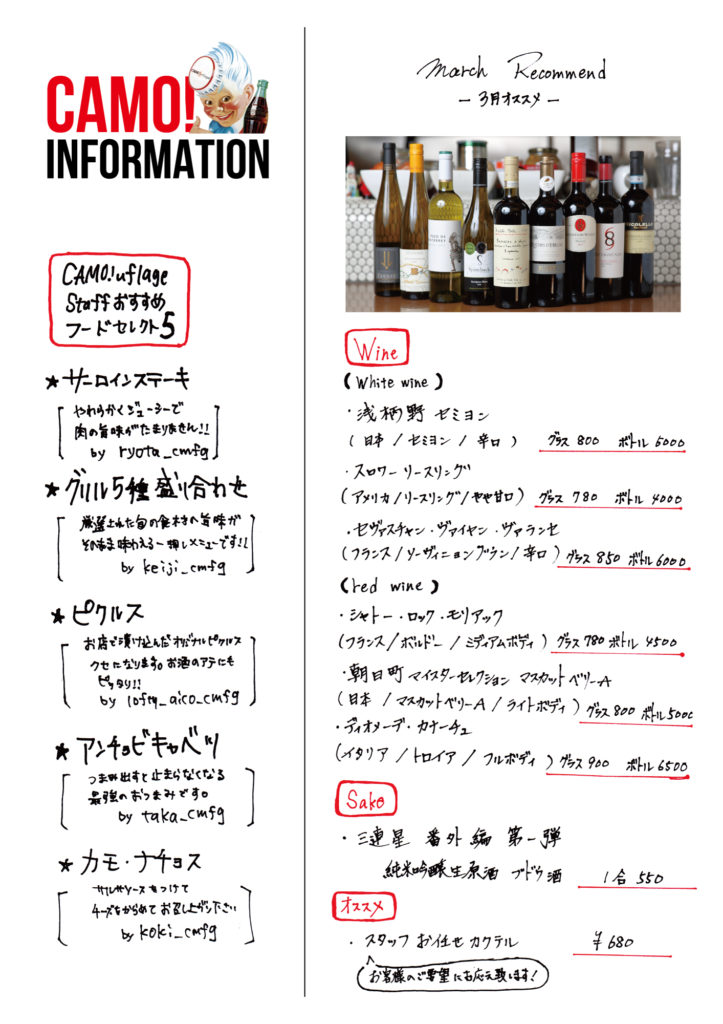 CAMO!
INFORMATION
CAMO!uflage
Staffおすすめ
フードセレクト5
★サーロインステーキ
やわらかくジューシーで
肉の旨味がたまりません!!
by ryota_cmfg
★グリル5種盛り合わせ
厳選された旬の食材を旨味が
そのまま味わえる一押しメニューです!!
by keiji_cmfg
★ピクルス
お店で漬け込んだオリジナルピクルス
クセになります。お酒のアテにも
ピッタリ!!
by lofty_aico_cmfg
★アンチョビキャベツ
つまみ出すと止まらなくなる
最強のおつまみです。
by taka_cmfg
★カモ・ナチョス
サルサソースをつけて
チーズをからめてお召し上がり下さい
by koki_cmfg
March Recommend
ー3月オススメー
Wine
(White wine)
・浅柄野 セミヨン
(日本/セミヨン/辛口) グラス 800 ボトル 5000
・スロワー リースリング
(アメリカ/リースリング/やや甘口) グラス 780 ボトル 4000
・セヴァスチャン・ヴァイヤン・ヴァランセ
(フランス/ソーヴィニョンブラン/辛口) グラス 850 ボトル 6000
(red wine)
・シャトー・ロック・モリアック
(フランス/ボルドー/ミディアムボディ) グラス 780 ボトル 4500
・朝日町 マイスターセレクション マスカットベリーA
(日本/マスカットベリーA/ライトボディ) グラス 800 ボトル 5000
・ディオメーデ・カナーチェ
(イタリア/トロイア/フルボディ) グラス 900 ボトル 6500
Sake
・三連星 番外編 第一弾
純米吟醸生原酒 ブドウ酒 1合 550
オススメ
・スタッフ お任せカクテル ¥680
お客様のご要望にお応え致します!